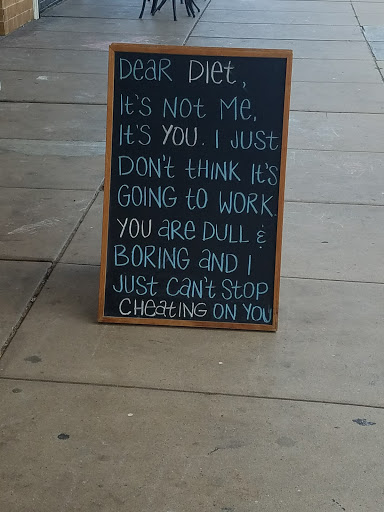 DEAR DIET,
IT'S NOT ME,
IT'S YOU. I JUST
DON'T THINK IT'S
GOING TO WORK.
YOU ARE DULL &
BORING AND I
JUST CAN'T STOP
CHEATING ON YOU